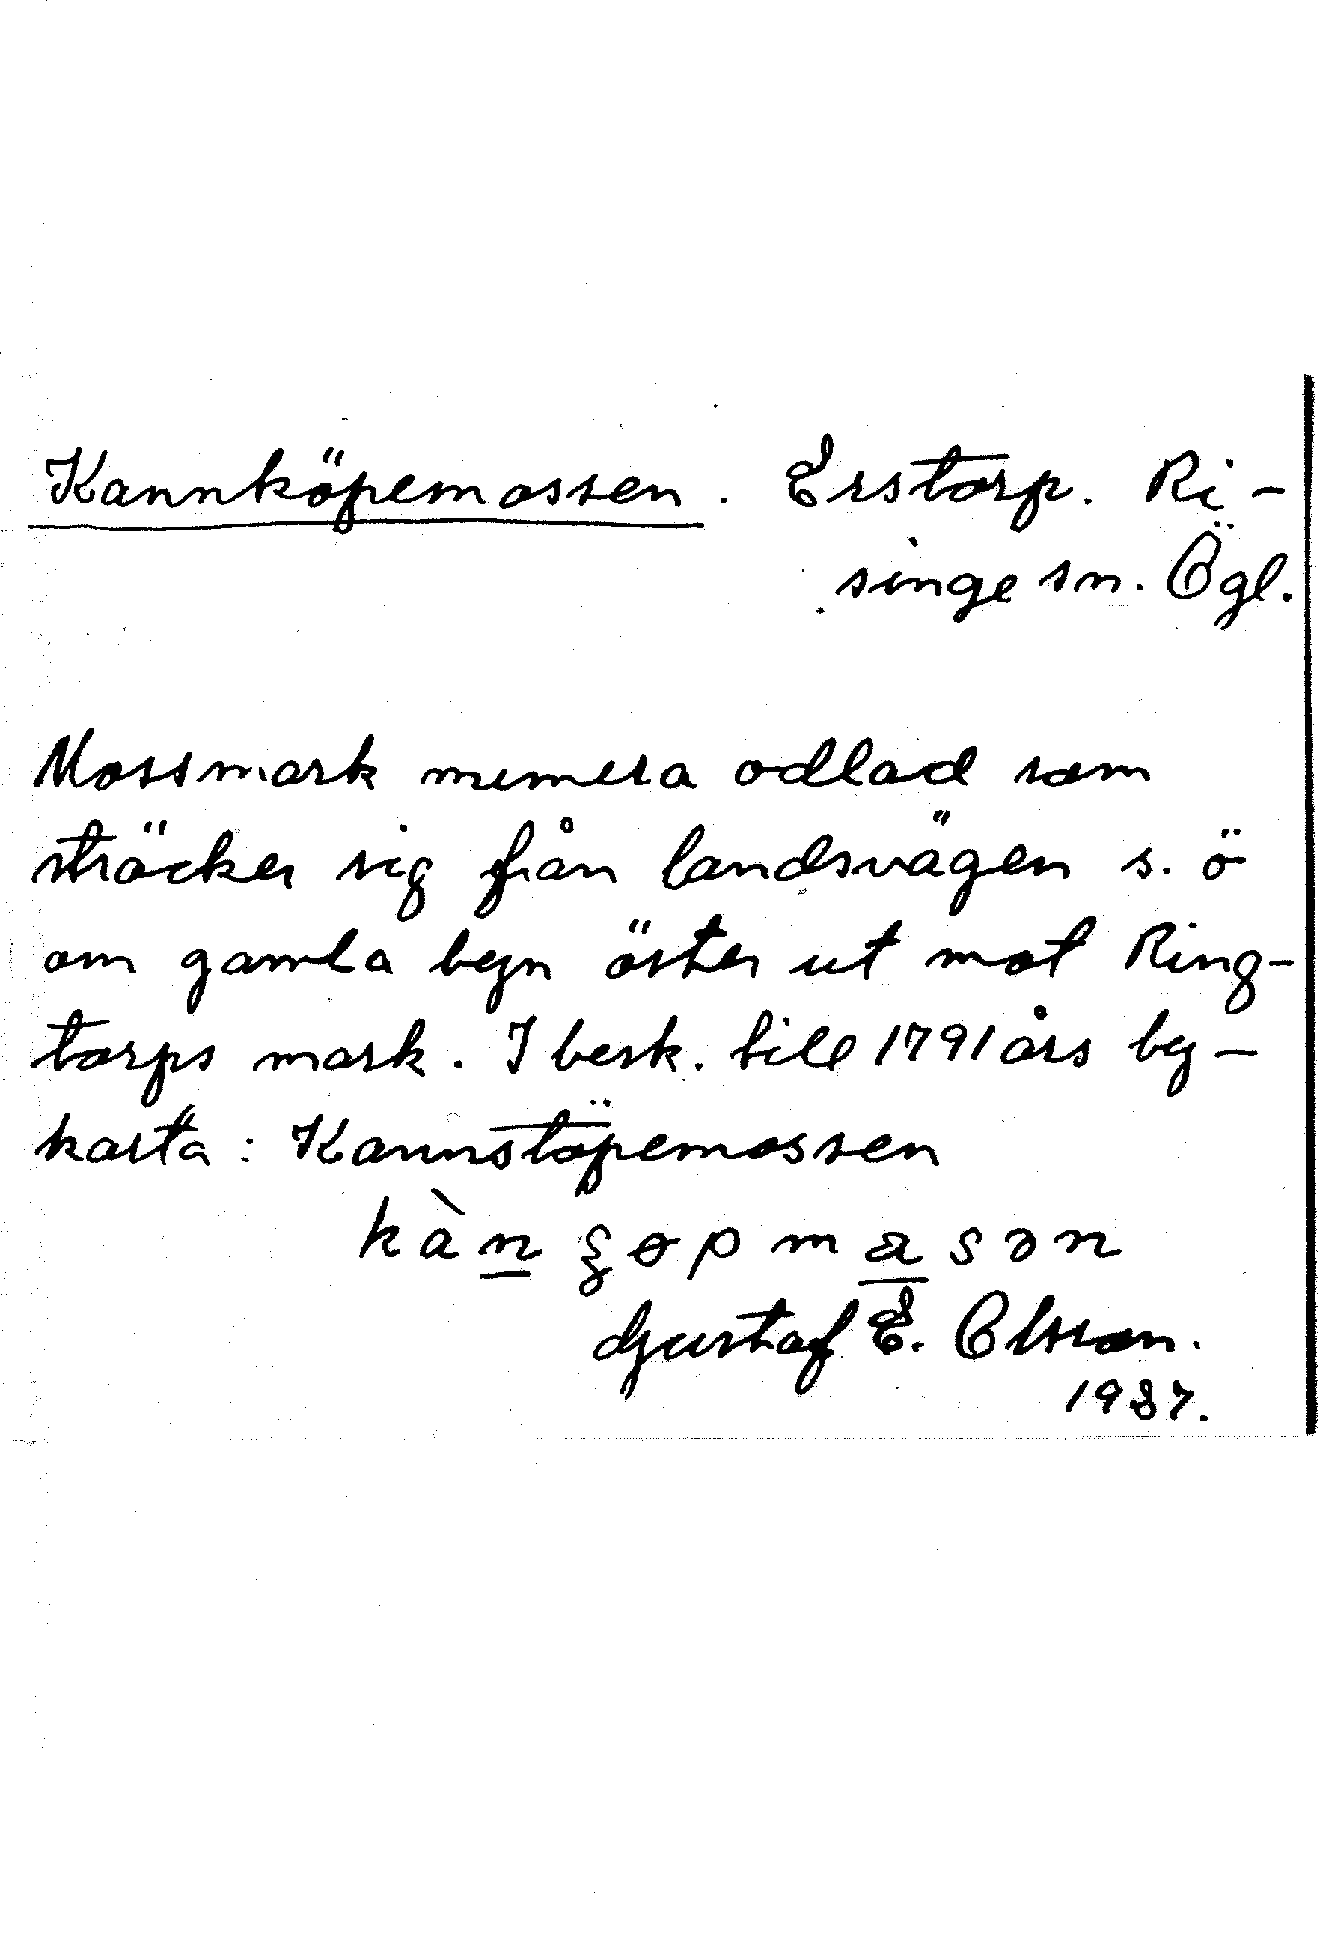 Kannköpemossen. Erstorp. Ri-
singe sn. Ögl.
Mossmark numera odlad som
sträcker sig från landsvägen s. ö
om gamla byn öster ut mot Ring-
torps mark. I besk. till 1791 års by-
karta: Kannstöpemossen
kàn ʂøpmasən
Gustaf E. Olsson.
1937.